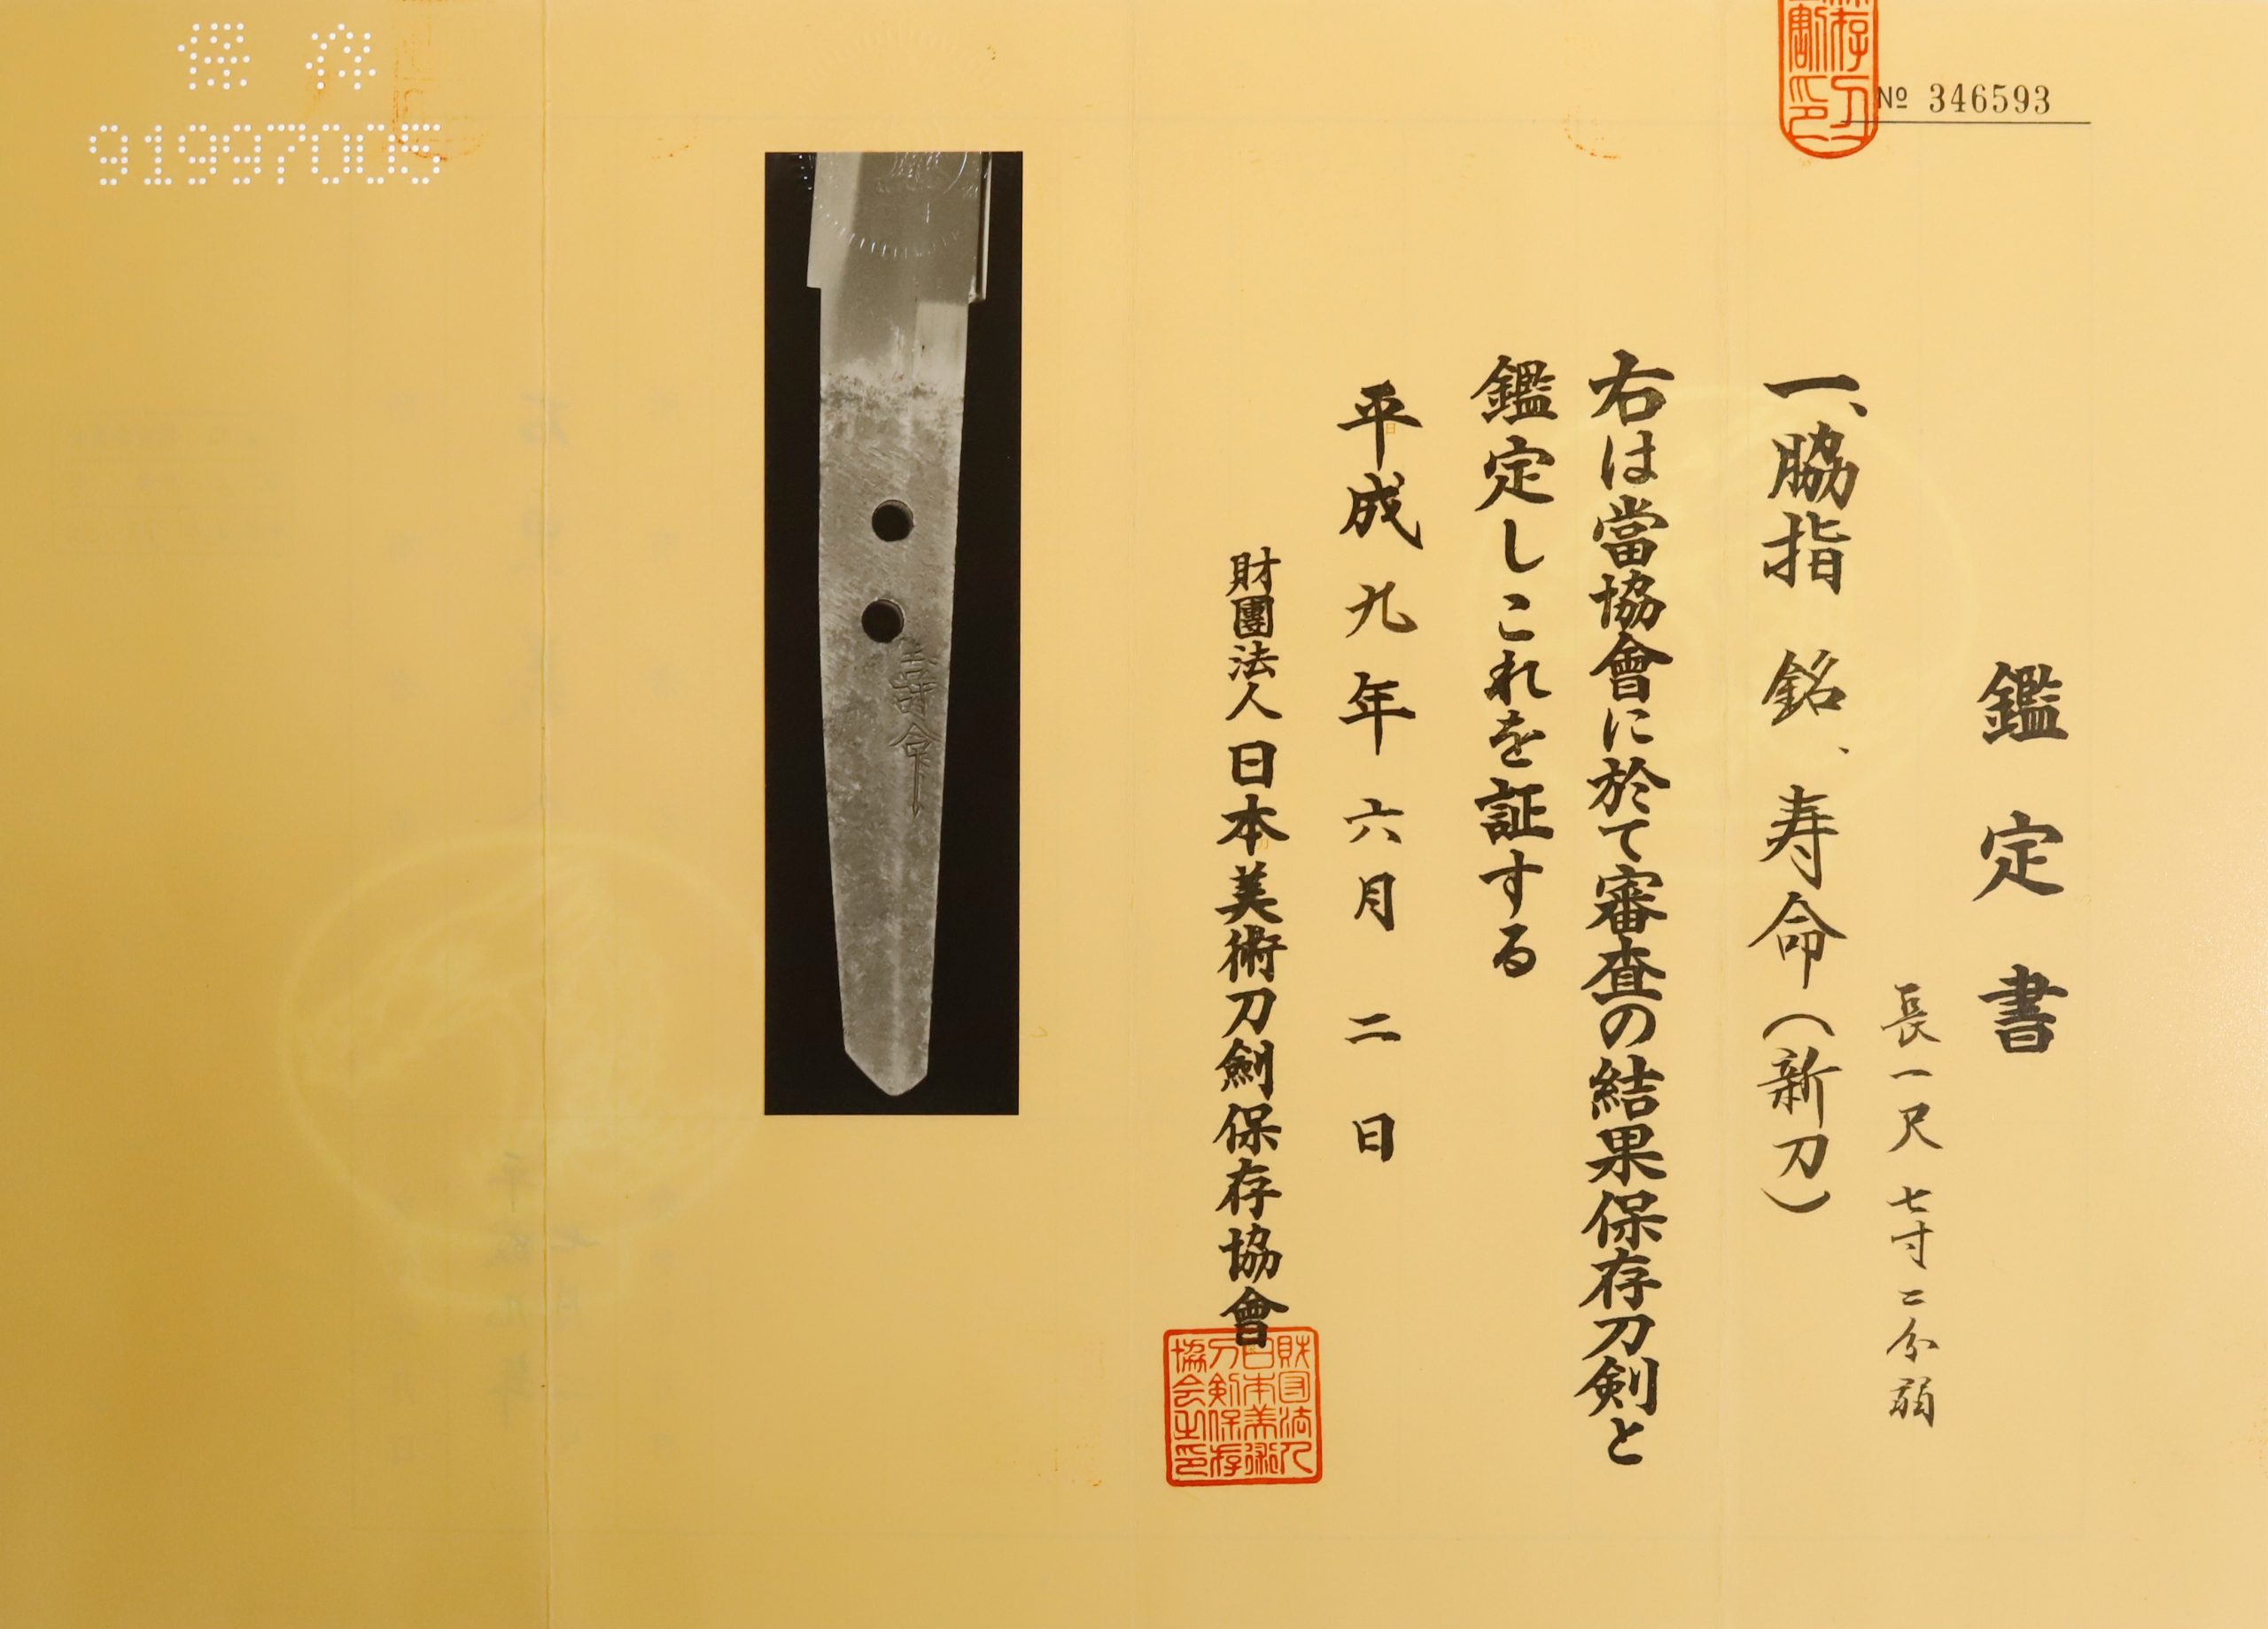 № 346593
鑑定書
長一尺七寸二分弱
一、脇指 銘、寿命(新刀)
右は當協會に於て審査の結果保存刀劍と
鑑定しこれを証する
平成九年六月二日
財團法人日本美術刀劍保存協會
財団法人
日本美術
刀剣保存
協会之印
壽命
保存
91997005